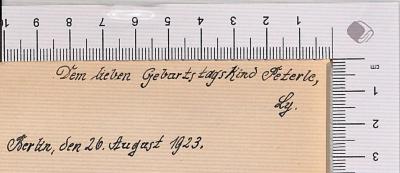 10 9 8 7 6 5 4 3 2 1
cm
1
2
3
Dem lieben Geburtstagskind Peterle,
Ly.
Berlin, den 26. August 1923.